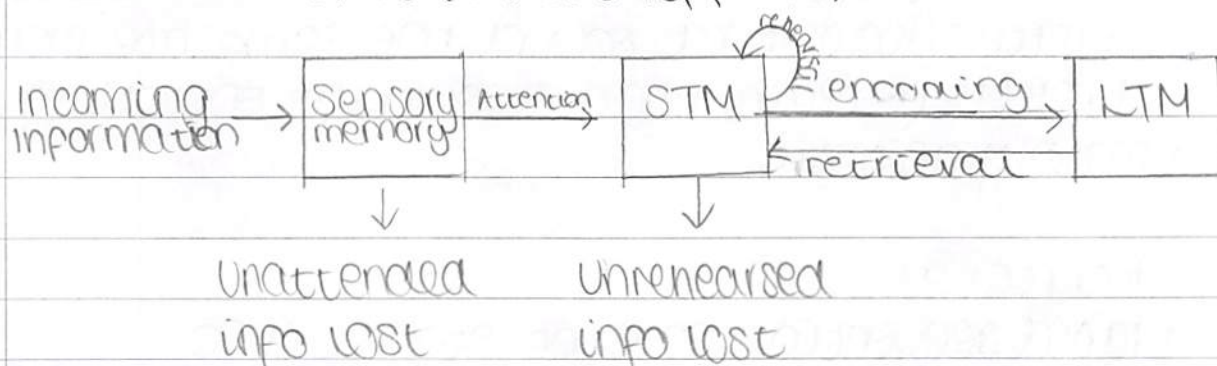 rehearsal
Incoming information
Sensory memory
Attention
STM
encoding
retrieval
LTM
Unattended info lost
Unrehearsed info lost